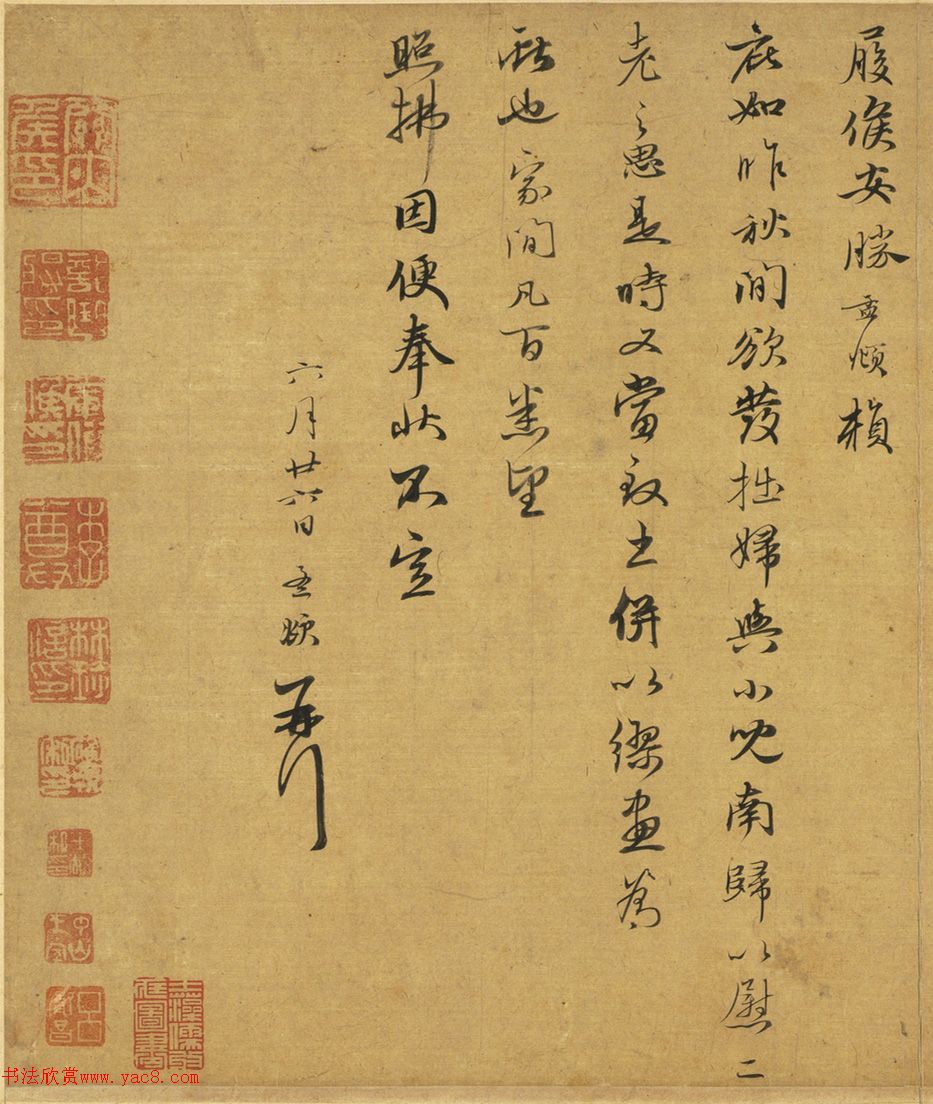 履候安勝孟頫賴
庇如昨秋間欲發拙婦與小兒南歸以慰二
老之思是時又當致土併以繆畫為
獻也家間凡百悉望
照拂因便奉狀不宣
六月廿六日孟頫再拜
书法欣赏www.yac8.com